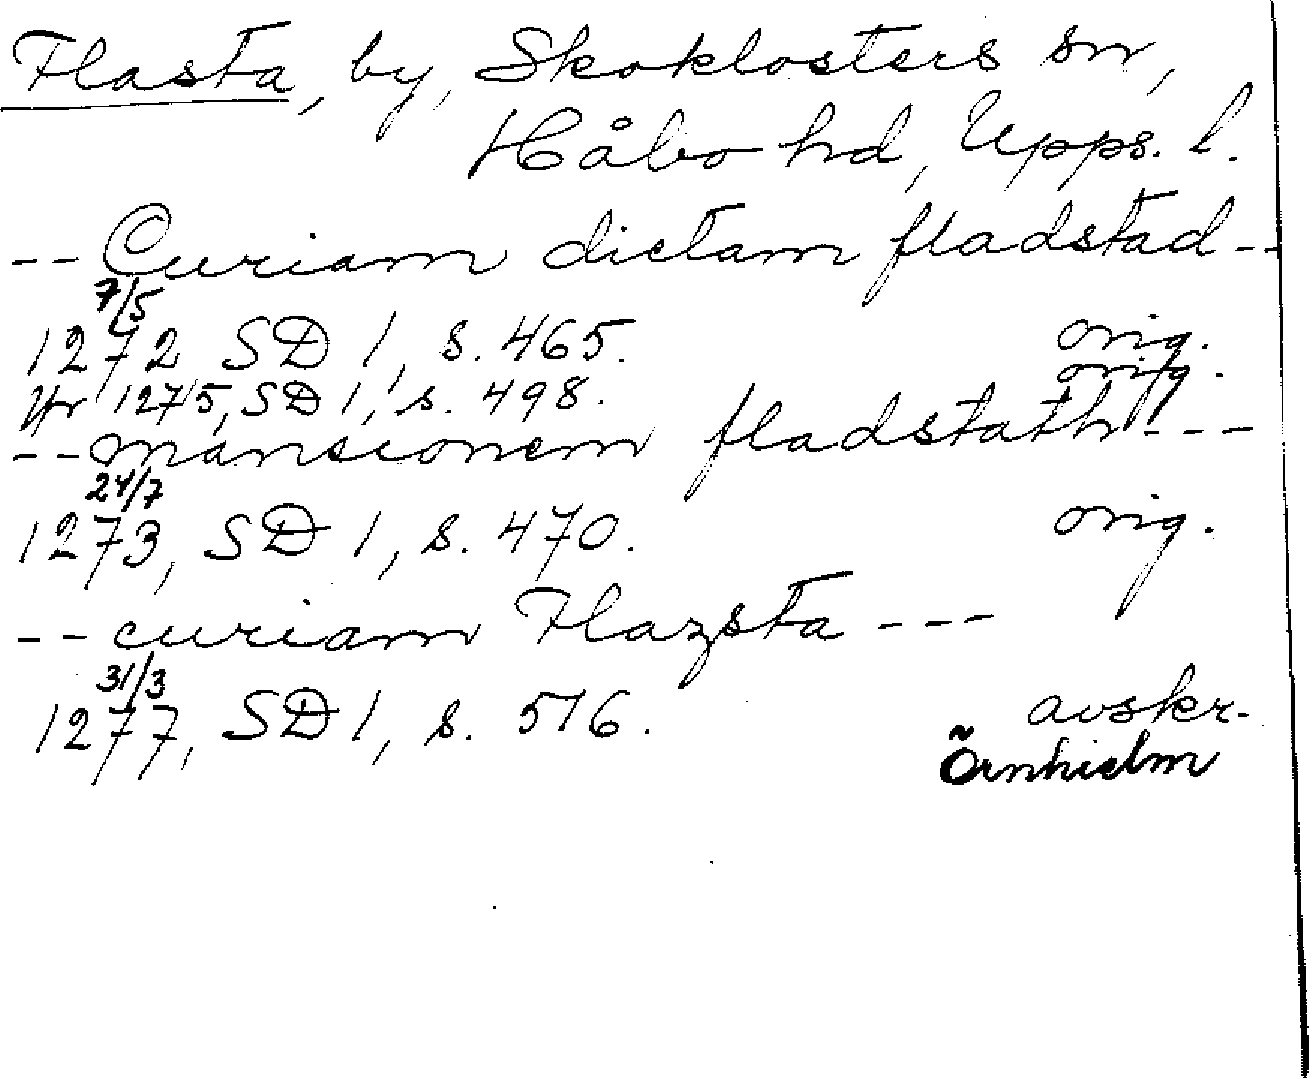 Flasta, by, Skoklosters sn,
Håbo hd, Upps. l.
-- Curiam dictam fladstad --
7/5
1272 SD 1, s. 465. orig.
1275, SD 1, s. 498. orig.
-- mansionem fladstath ---
24/7
1273, SD 1, s. 470. orig.
-- curiam Flazsta ---
31/3
1277, SD 1, s. 516. avskr.
Örnhielm